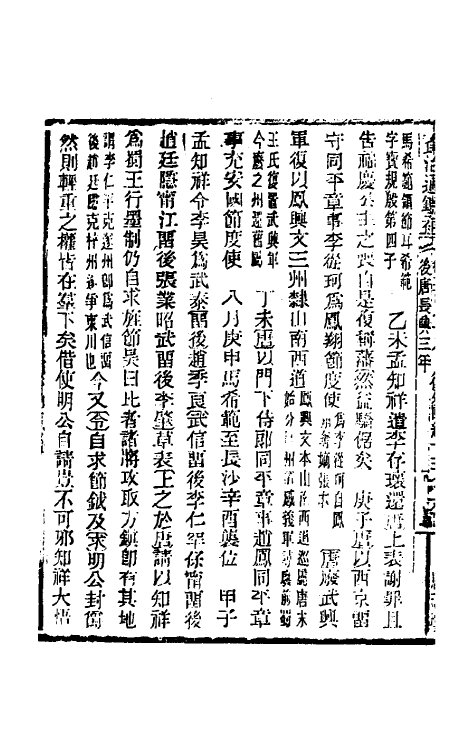 後唐長興三年
馬希範領節耳希範
字寶規殷第四子　乙未孟知祥遣李存瓌還唐上表謝罪且
告福慶公主之喪自是復稱藩然益驕倨矣　庚子唐以西京留
守同平章事李從珂爲鳳翔節度使　唐廢武興
軍復以鳳興文三州隸山南西道
王氏復置武興軍
今廢之州還舊屬　丁未唐以門下侍郎同平章事趙鳳同平章
事充安國節度使　八月庚申馬希範至長沙辛酉襲位　甲子
孟知祥令李昊爲武泰留後趙季良武信留後李仁罕保寧留後
趙廷隱寧江留後張業昭武留後李肇草表上之於唐請以知祥
爲蜀王行墨制仍自求旌節昊曰比者諸將攻取方鎭卽有其地
謂李仁罕克遂州卽爲武信留
後趙廷隱克梓州爭東川也　今又令自求節鉞及求明公封爵
然則輕重之權皆在羣下矣借使明公自請豈不可邪知祥大悟